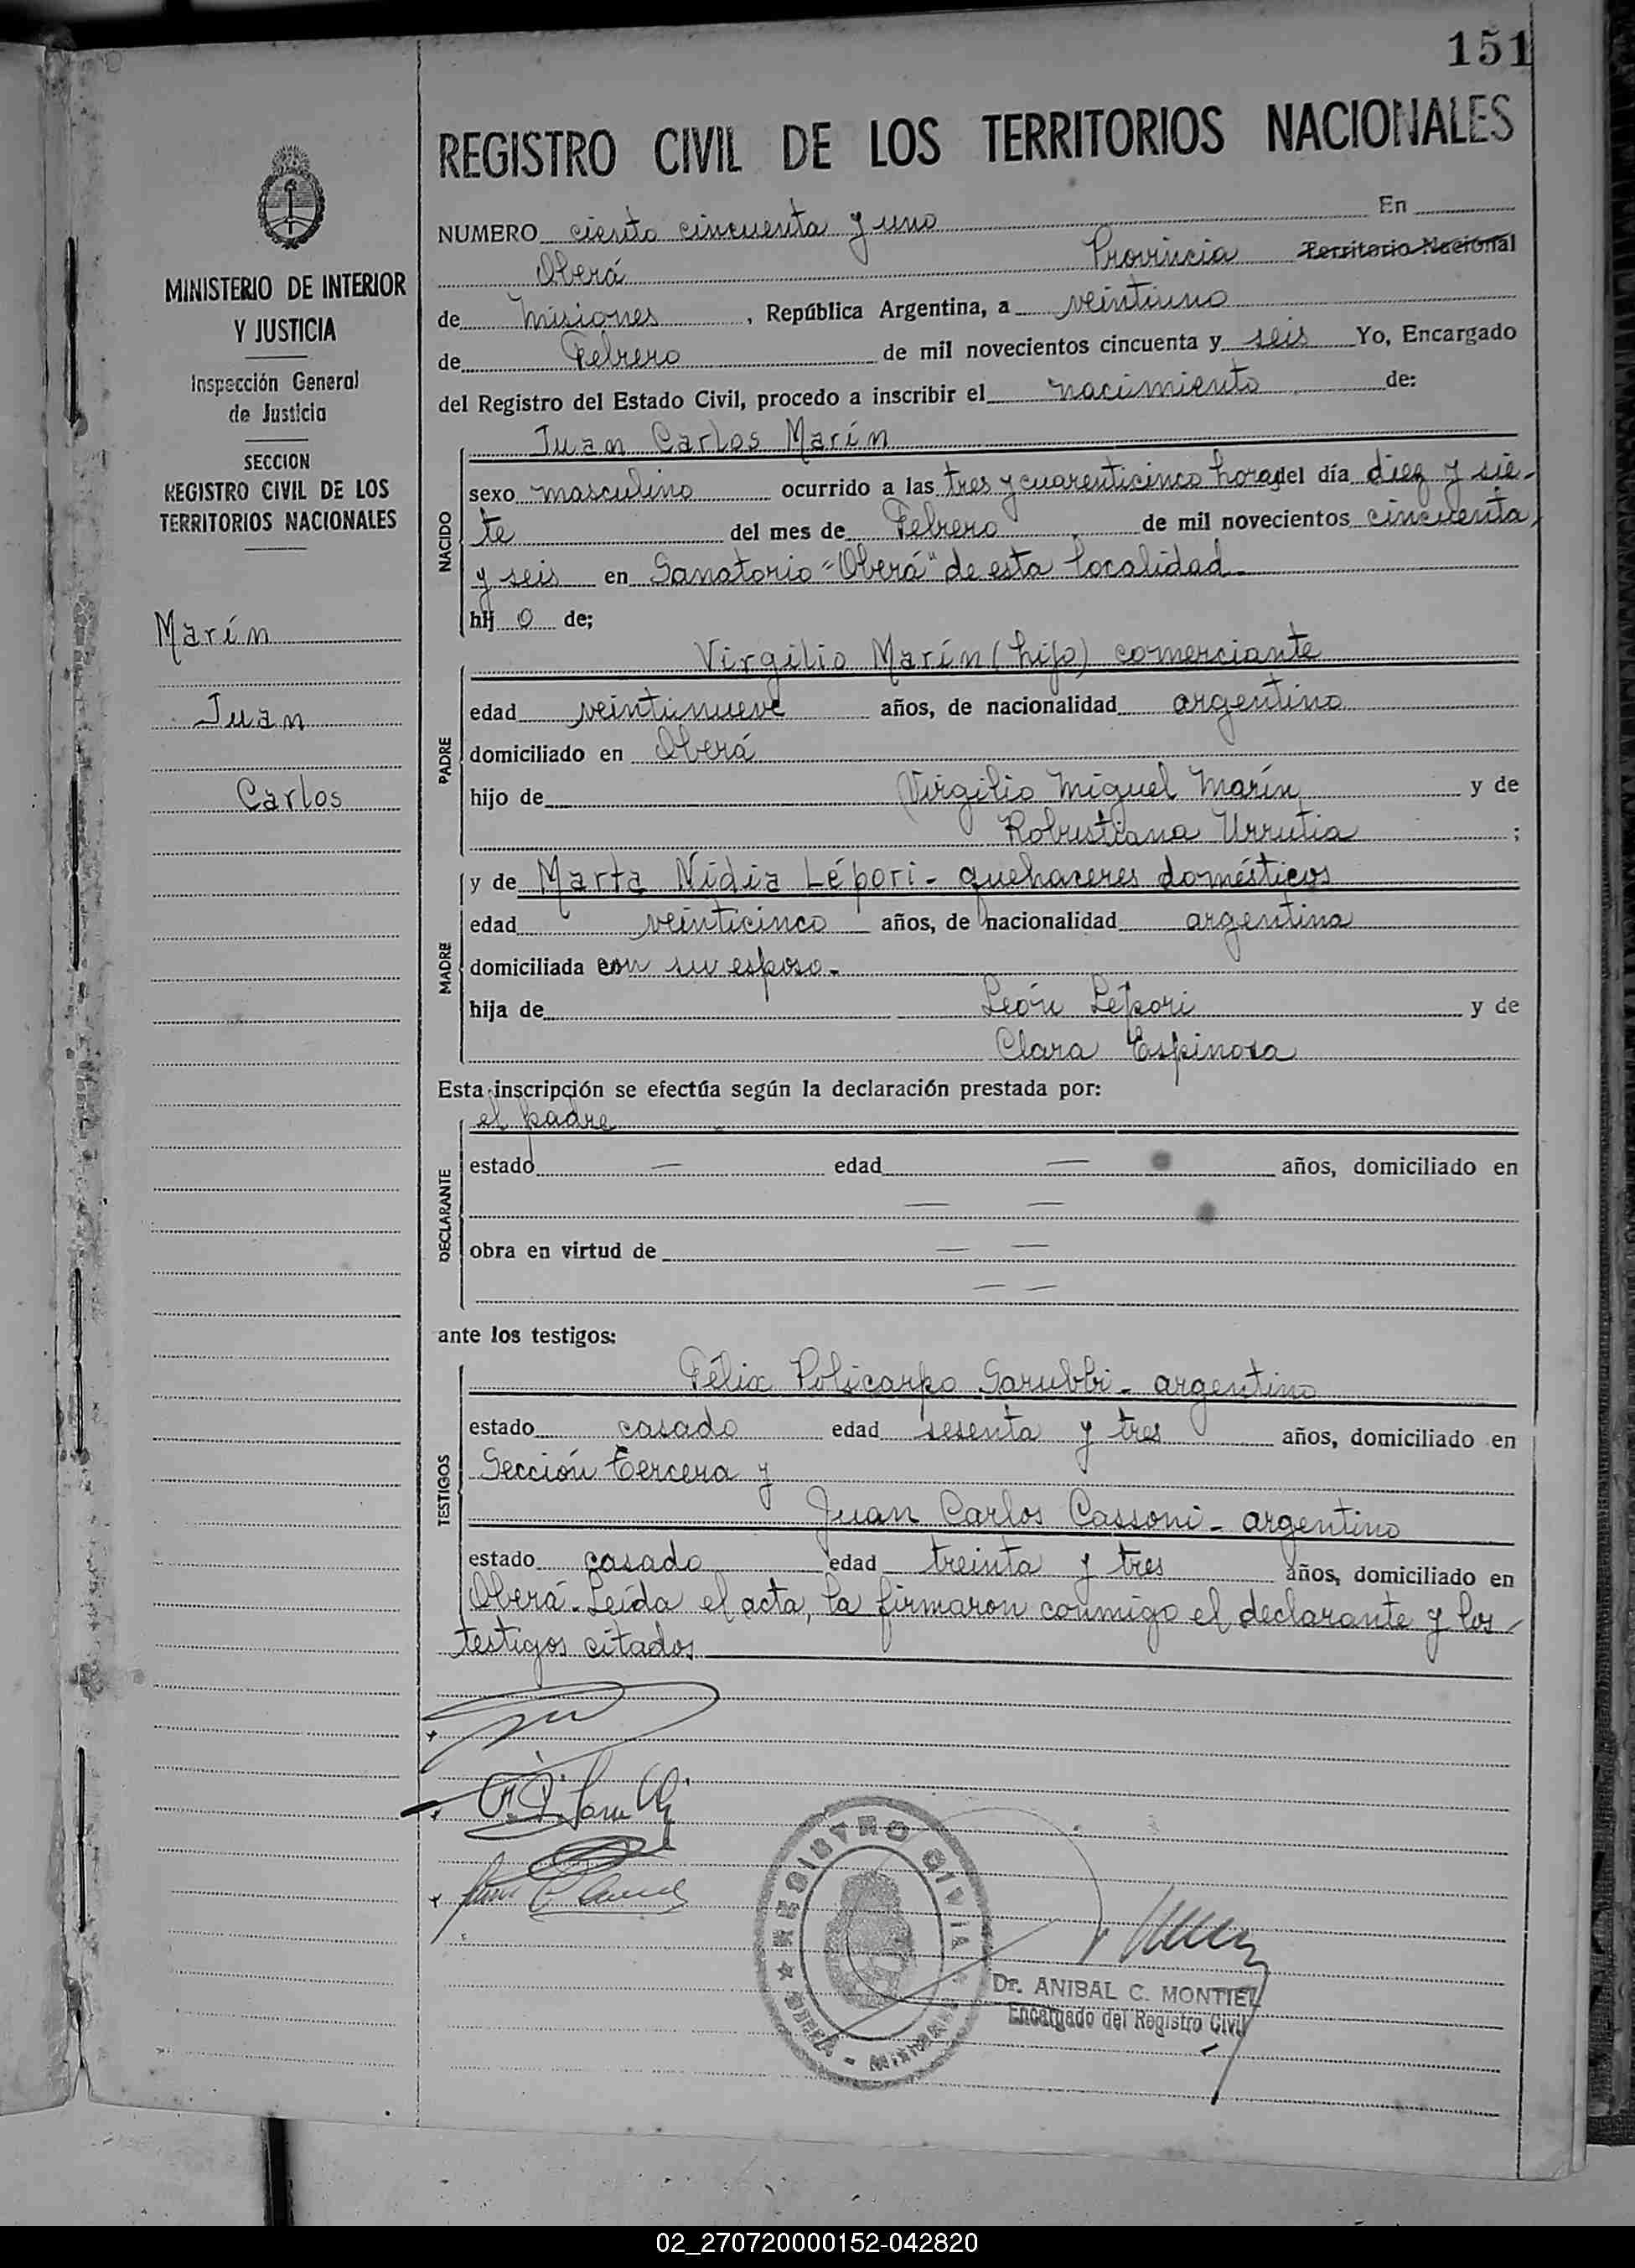 151
REGISTRO CIVIL DE LOS TERRITORIOS NACIONALES
MINISTERIO DE INTERIOR
Y JUSTICIA
Inspección General
de Justicia
SECCION
REGISTRO CIVIL DE LOS
TERRITORIOS NACIONALES
Marín
Juan
Carlos
NUMERO ciento cincuenta y uno En
Oberá Provincia Territorio Nacional
de Misiones, República Argentina, a veintiuno
de Febrero de mil novecientos cincuenta y seis Yo, Encargado
del Registro del Estado Civil, procedo a inscribir el nacimiento de:
NACIDO
Juan Carlos Marín
sexo masculino ocurrido a las tres y cuarenticinco horas del día diez y sie-
te del mes de Febrero de mil novecientos cincuenta
y seis en Sanatorio "Oberá" de esta localidad
hij o de;
PADRE
Virgilio Marín (hijo) comerciante
edad veintinueve años, de nacionalidad argentino
domiciliado en Oberá
hijo de Virgilio Miguel Marín y de
Robustiana Urrutia ;
MADRE
y de Marta Nidia Lépori - quehaceres domésticos
edad veinticinco años, de nacionalidad argentina
domiciliada con su esposo.-
hija de León Lépori y de
Clara Espinosa
Esta inscripción se efectúa según la declaración prestada por:
DECLARANTE
el padre
estado — edad — años, domiciliado en
— —
obra en virtud de — —
— —
ante los testigos:
TESTIGOS
Félix Policarpo Sarubbi - argentino
estado casado edad sesenta y tres años, domiciliado en
Sección tercera y
Juan Carlos Cassoni - argentino
estado casado edad treinta y tres años, domiciliado en
Oberá. Leída el acta, la firmaron conmigo el declarante y los
testigos citados
REGISTRO CIVIL
OBERA - MISIONES
Dr. ANIBAL C. MONTIEL
Encargado del Registro Civil
02_270720000152-042820